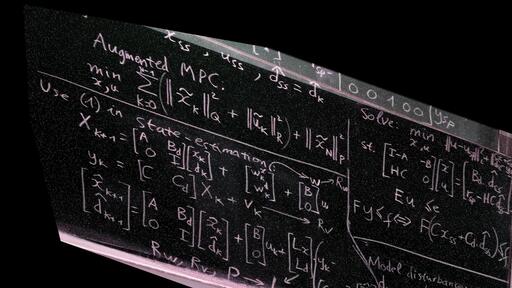 x_ss, u_ss, d̂_ss = d̂_k
0 0 1 0 0 | y_sp
Augmented MPC:
min x,u Σ k=0 ( ||x̃_k||²_Q + ||ũ_k||²_R ) + ||x̃_N||²_P
Use (1) in state-estimation:
X_k+1 = [A B_d; 0 I] [x_k; d_k] + [w^x_k; w^d_k] + [B; 0] u
w → R_w
y_k = [C C_d] X_k + v_k → R_v
[x̂_k+1; d̂_k+1] = [A B_d; 0 I] [x̂_k; d̂_k] + [B; 0] u_k + [L_x; L_d] (y_k -
R_w, R_v, P → L
Solve: min x,u
st. [I-A -B; HC 0] [x; u] = [B_d d̂; r_sp - HC_d
Eu ≤ e
Fy ≤ f ⇔ F(Cx_ss + C_d d̂_ss) ≤ f
Model disturbance